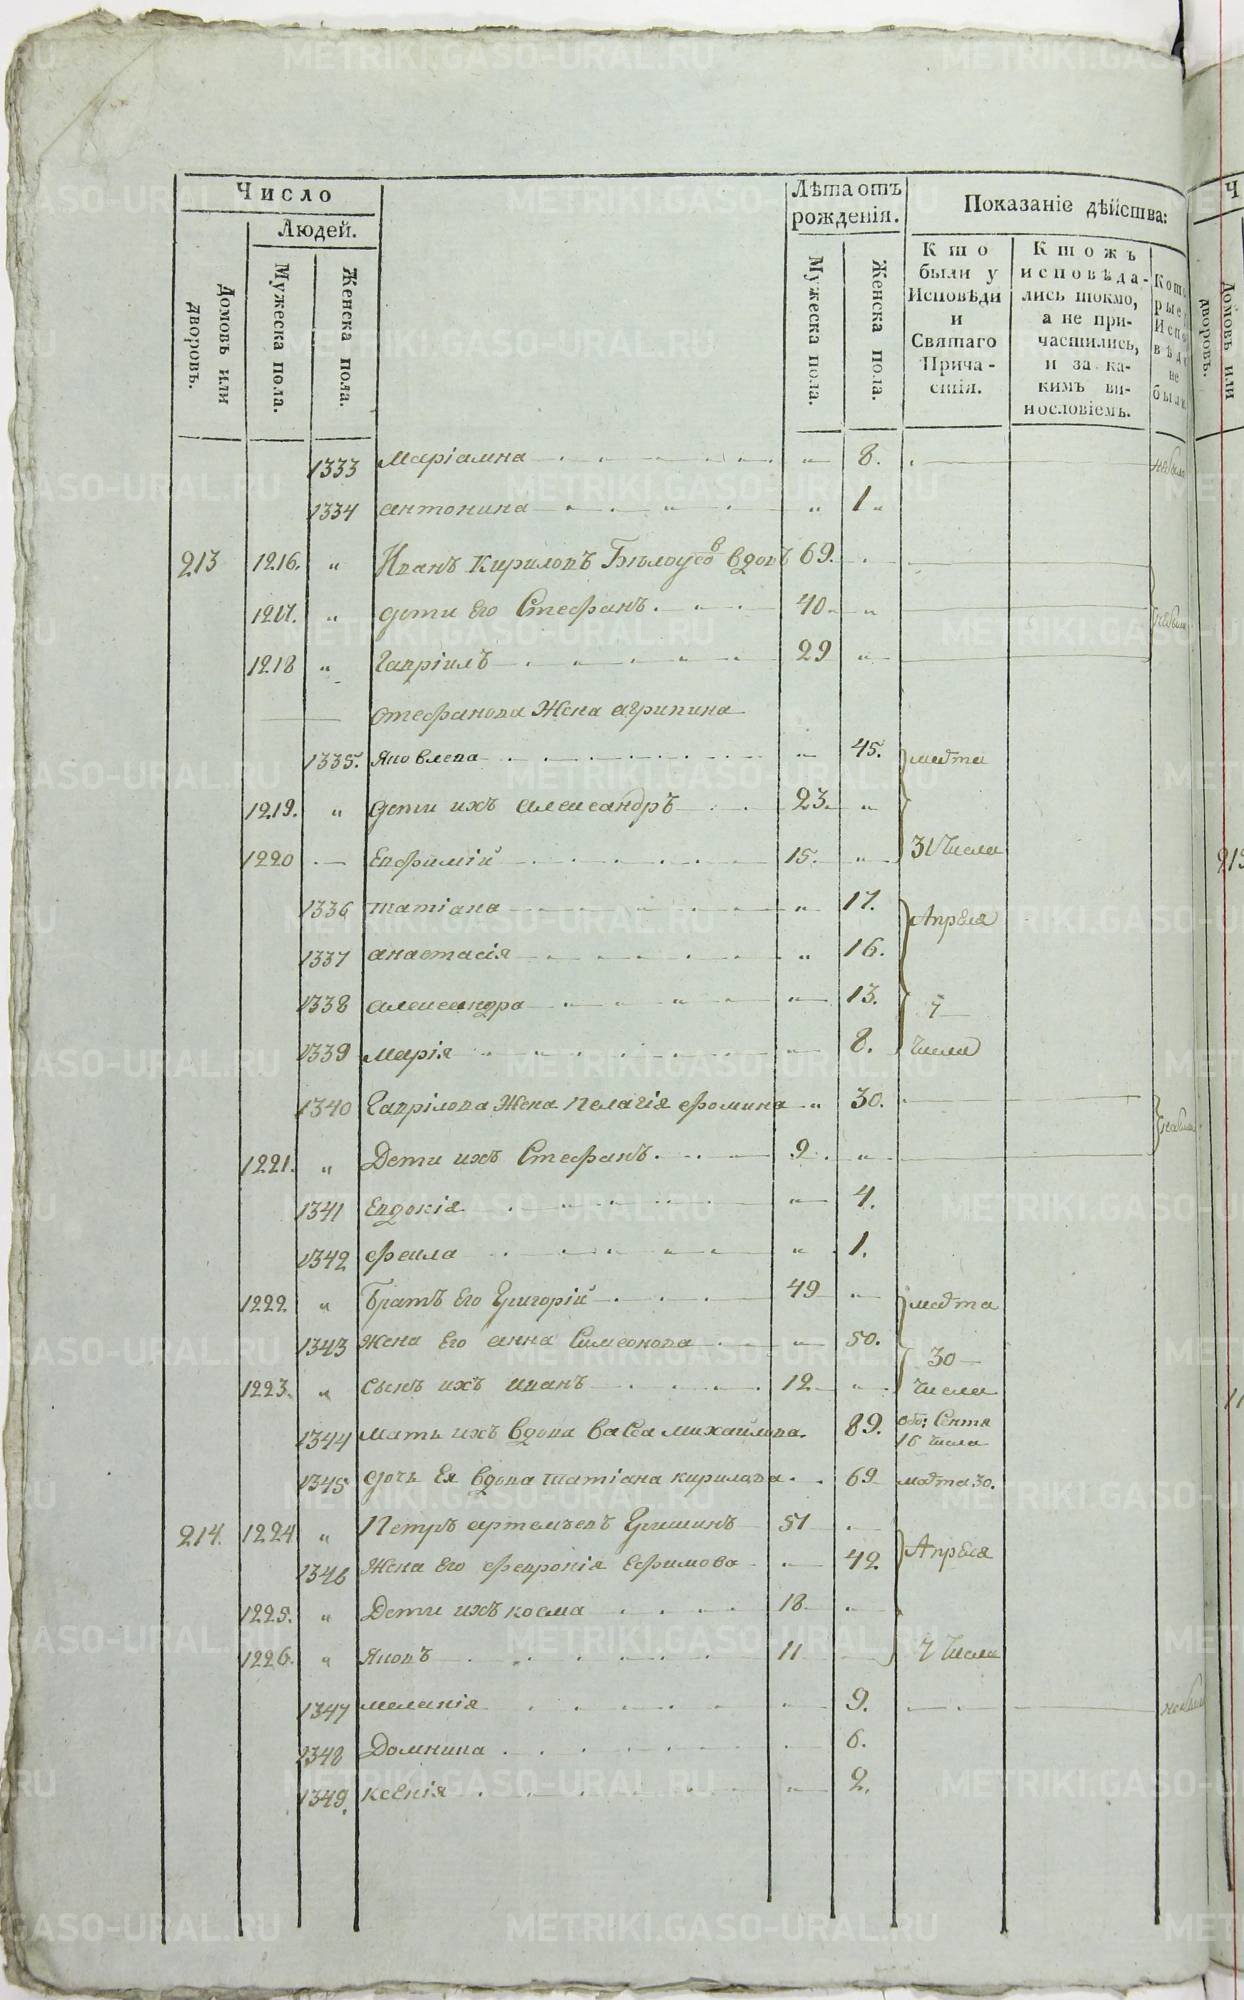 Число
Людей.
Домовъ или дворовъ.
Мужеска пола.
Женска пола.
Лѣта отъ рожденія.
Мужеска пола.
Женска пола.
Показаніе дѣйства:
Кто были у Исповѣди и Святаго Прича-стія.
Ктожъ исповѣда-лись токмо, а не при-частились, и за ка-кимъ ви-нословіемъ.
1333 Маріамна 8.
1334 антонина 1
213 1216. Иванъ Кириловъ Бѣлоусовъ вдовъ 69.
1217. дети Его Стефанъ. 40
1218 Гавріилъ 29
Стефанова Жена агрипина
1335. Яковлева 45. марта
1219. дети ихъ александръ 23.
1220 Евфимій 15. 31 Числа
1336 татіана 17. Апреля
1337 анастасія 16.
1338 александра 13. 7
1339 марія 8. числа
1340 Гаврілова Жена Пелагія фомина 30.
1221. Дети ихъ Стефанъ. 9.
1341 Евдокія 4.
1342 фекла 1.
1222 Братъ Его Григорій 49 марта
1343 Жена Его анна Симеонова 50. 30
1223. Сынъ ихъ иванъ 12 числа
1344 мать ихъ вдова васса михаилова. 89. Сентя 16 числа
1345 дочь Ея вдова татіана кирилова 69 марта 30.
214. 1224 Петръ артемьевъ Гришинъ 51
1346 Жена Его февронія Ефимова 42 Апреля
1225. Дети ихъ косма 18
1226. Яковъ 11 7 Числа
1347 меланія 9.
1348 Домника 6.
1349. ксенія 2.
METRIKI.GASO-URAL.RU